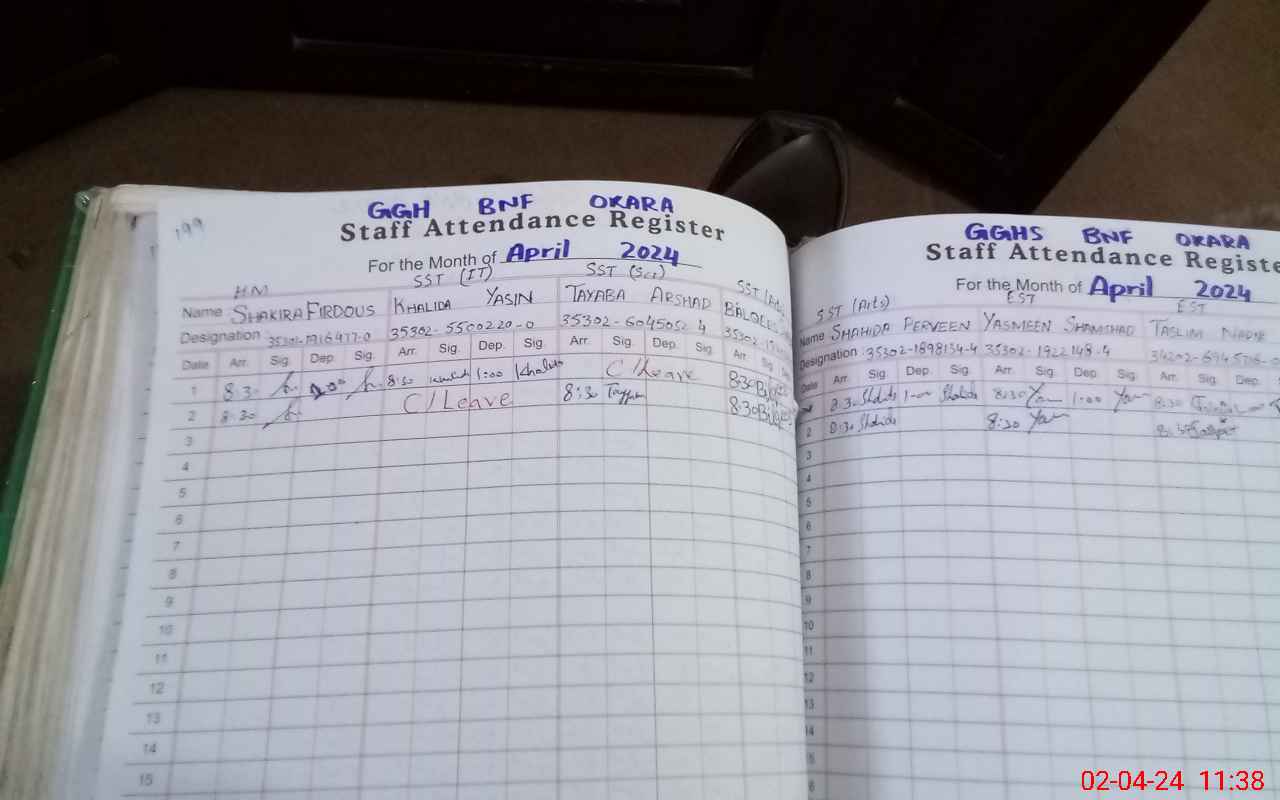 199
GGH BNF OKARA
Staff Attendance Register
For the Month of April 2024
HM SST (IT) SST (Sci) SST (Arts
Name SHAKIRA FIRDOUS KHALIDA YASIN TAYABA ARSHAD
Designation 35302-5500220-0 35302-6045052 4
Date Arr. Sig. Dep. Sig. Arr. Sig. Dep. Sig. Arr. Sig. Dep. Sig. Arr. Sig. De
1 8.30 8:30 1:00 Khalida C/Leave 8:30
2 8:30 C/Leave 8:30 8:30
3
4
5
6
7
8
9
10
11
12
13
14
15
GGHS BNF OKARA
Staff Attendance Registe
For the Month of April 2024
SST (Arts) EST EST
Name SHAHIDA PERVEEN YASMEEN SHAMSHAD TASLIM
Designation 35302-1898134-4 35302-1922148-4
Date Arr. Sig. Dep. Sig. Arr. Sig. Dep. Sig. Arr. Sig. Dep.
8:30 Shahida Shahida 8:30 Yas 1:00 Yas 8:30
2 8:30 Shahida 8:30 Yas 8:30
3
4
5
6
7
8
9
10
11
12
13
14
02-04-24 11:38